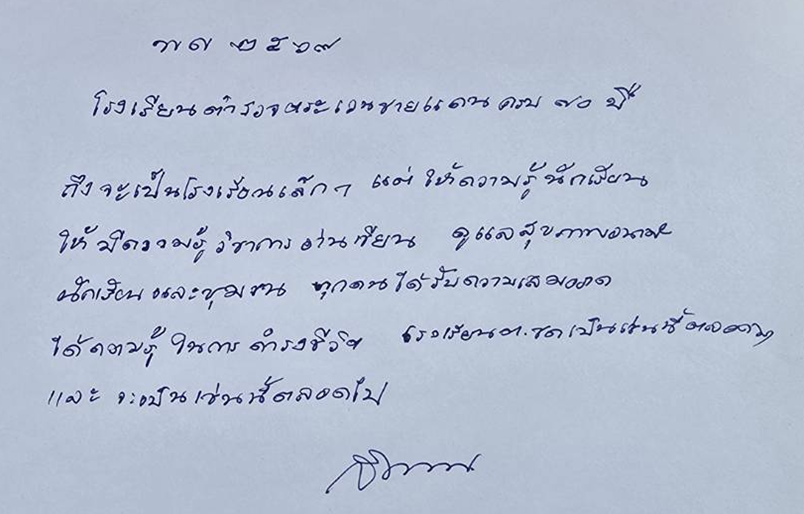 พ ศ ๒๕๖๗
โรงเรียนตำรวจตระเวนชายแดน ครบ ๗๐ ปี
ถึงจะเป็นโรงเรียนเล็กๆ แต่ ให้ความรู้ นักเรียน
ให้ มีความรู้ วิชาการ อ่านเขียน ดูแลสุขภาพอนามัย
นักเรียน และชุมชน ทุกคนได้รับความเสมอภาค
ได้ความรู้ ในการ ดำรงชีวิต โรงเรียน ต.ช.ด เป็นเช่นนี้ตลอดมา
และ จะเป็นเช่นนี้ตลอดไป